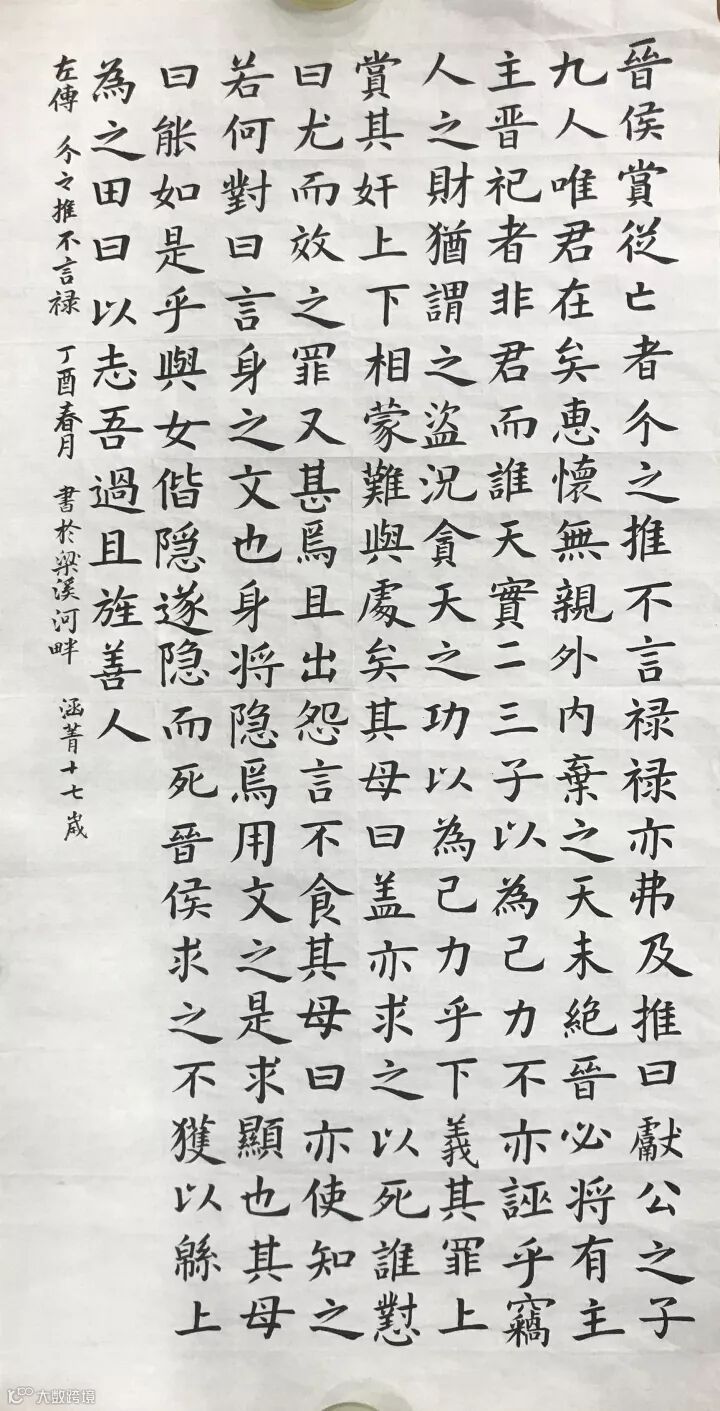 晉侯賞從亡者介之推不言禄禄亦弗及推曰獻公之子
九人唯君在矣惠懷無親外内棄之天未絶晉必將有主
主晋祀者非君而誰天實二三子以為己力不亦誣乎竊
人之財猶謂之盜況貪天之功以為己力乎下義其罪上
賞其奸上下相蒙難與處矣其母曰盖亦求之以死誰懟
曰尤而效之罪又甚焉且出怨言不食其母曰亦使知之
若何對曰言身之文也身将隐焉用文之是求顯也其母
曰能如是乎與女偕隐遂隐而死晉侯求之不獲以緜上
為之田曰以志吾過且旌善人
左傳 介之推不言禄 丁酉春月 書於梁溪河畔 涵菁十七嵗
大数跨境